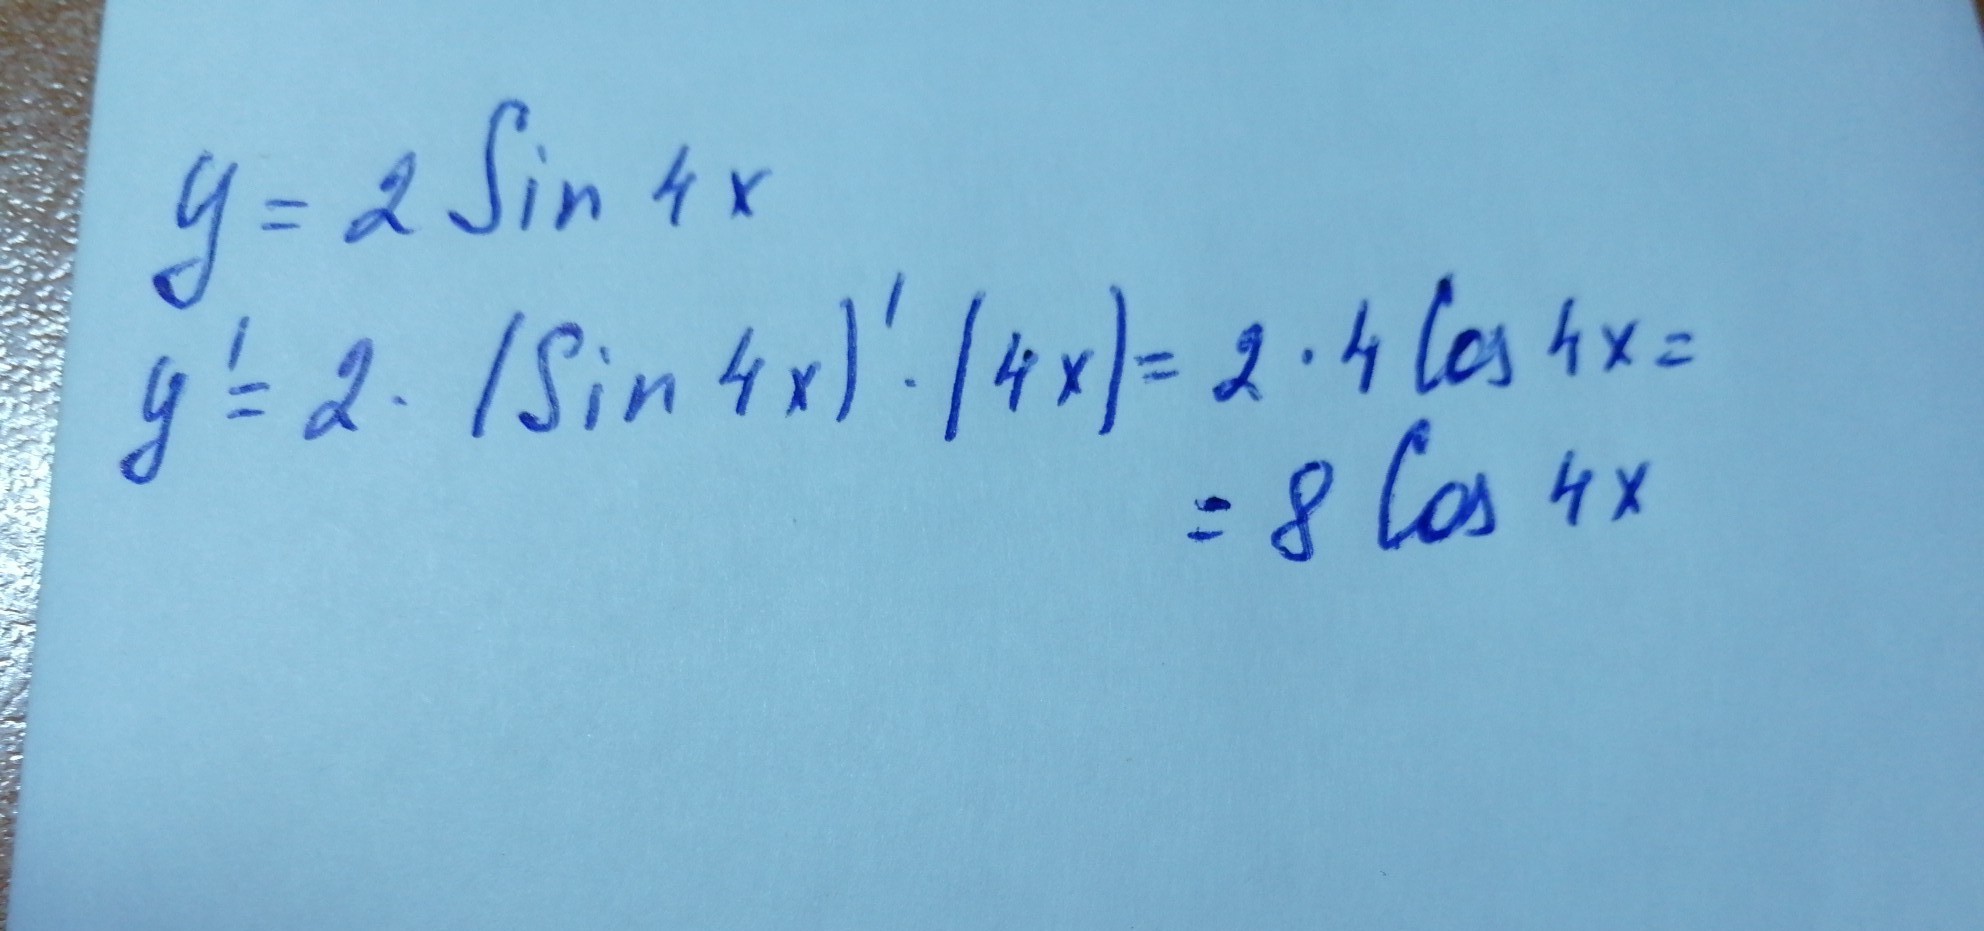 y = 2 Sin 4x
y' = 2 · (Sin 4x)' · (4x) = 2 · 4 Cos 4x =
= 8 Cos 4x